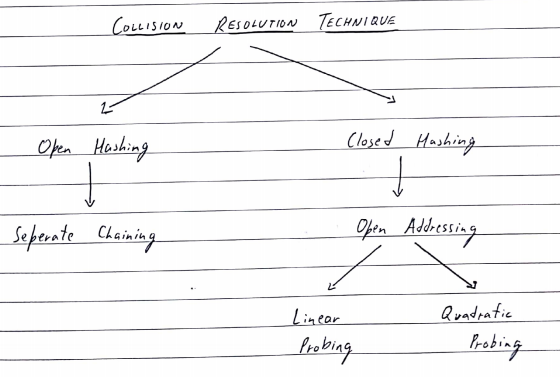 COLLISION RESOLUTION TECHNIQUE
Open Hashing
Closed Hashing
Seperate Chaining
Open Addressing
Linear
Probing
Quadratic
Probing